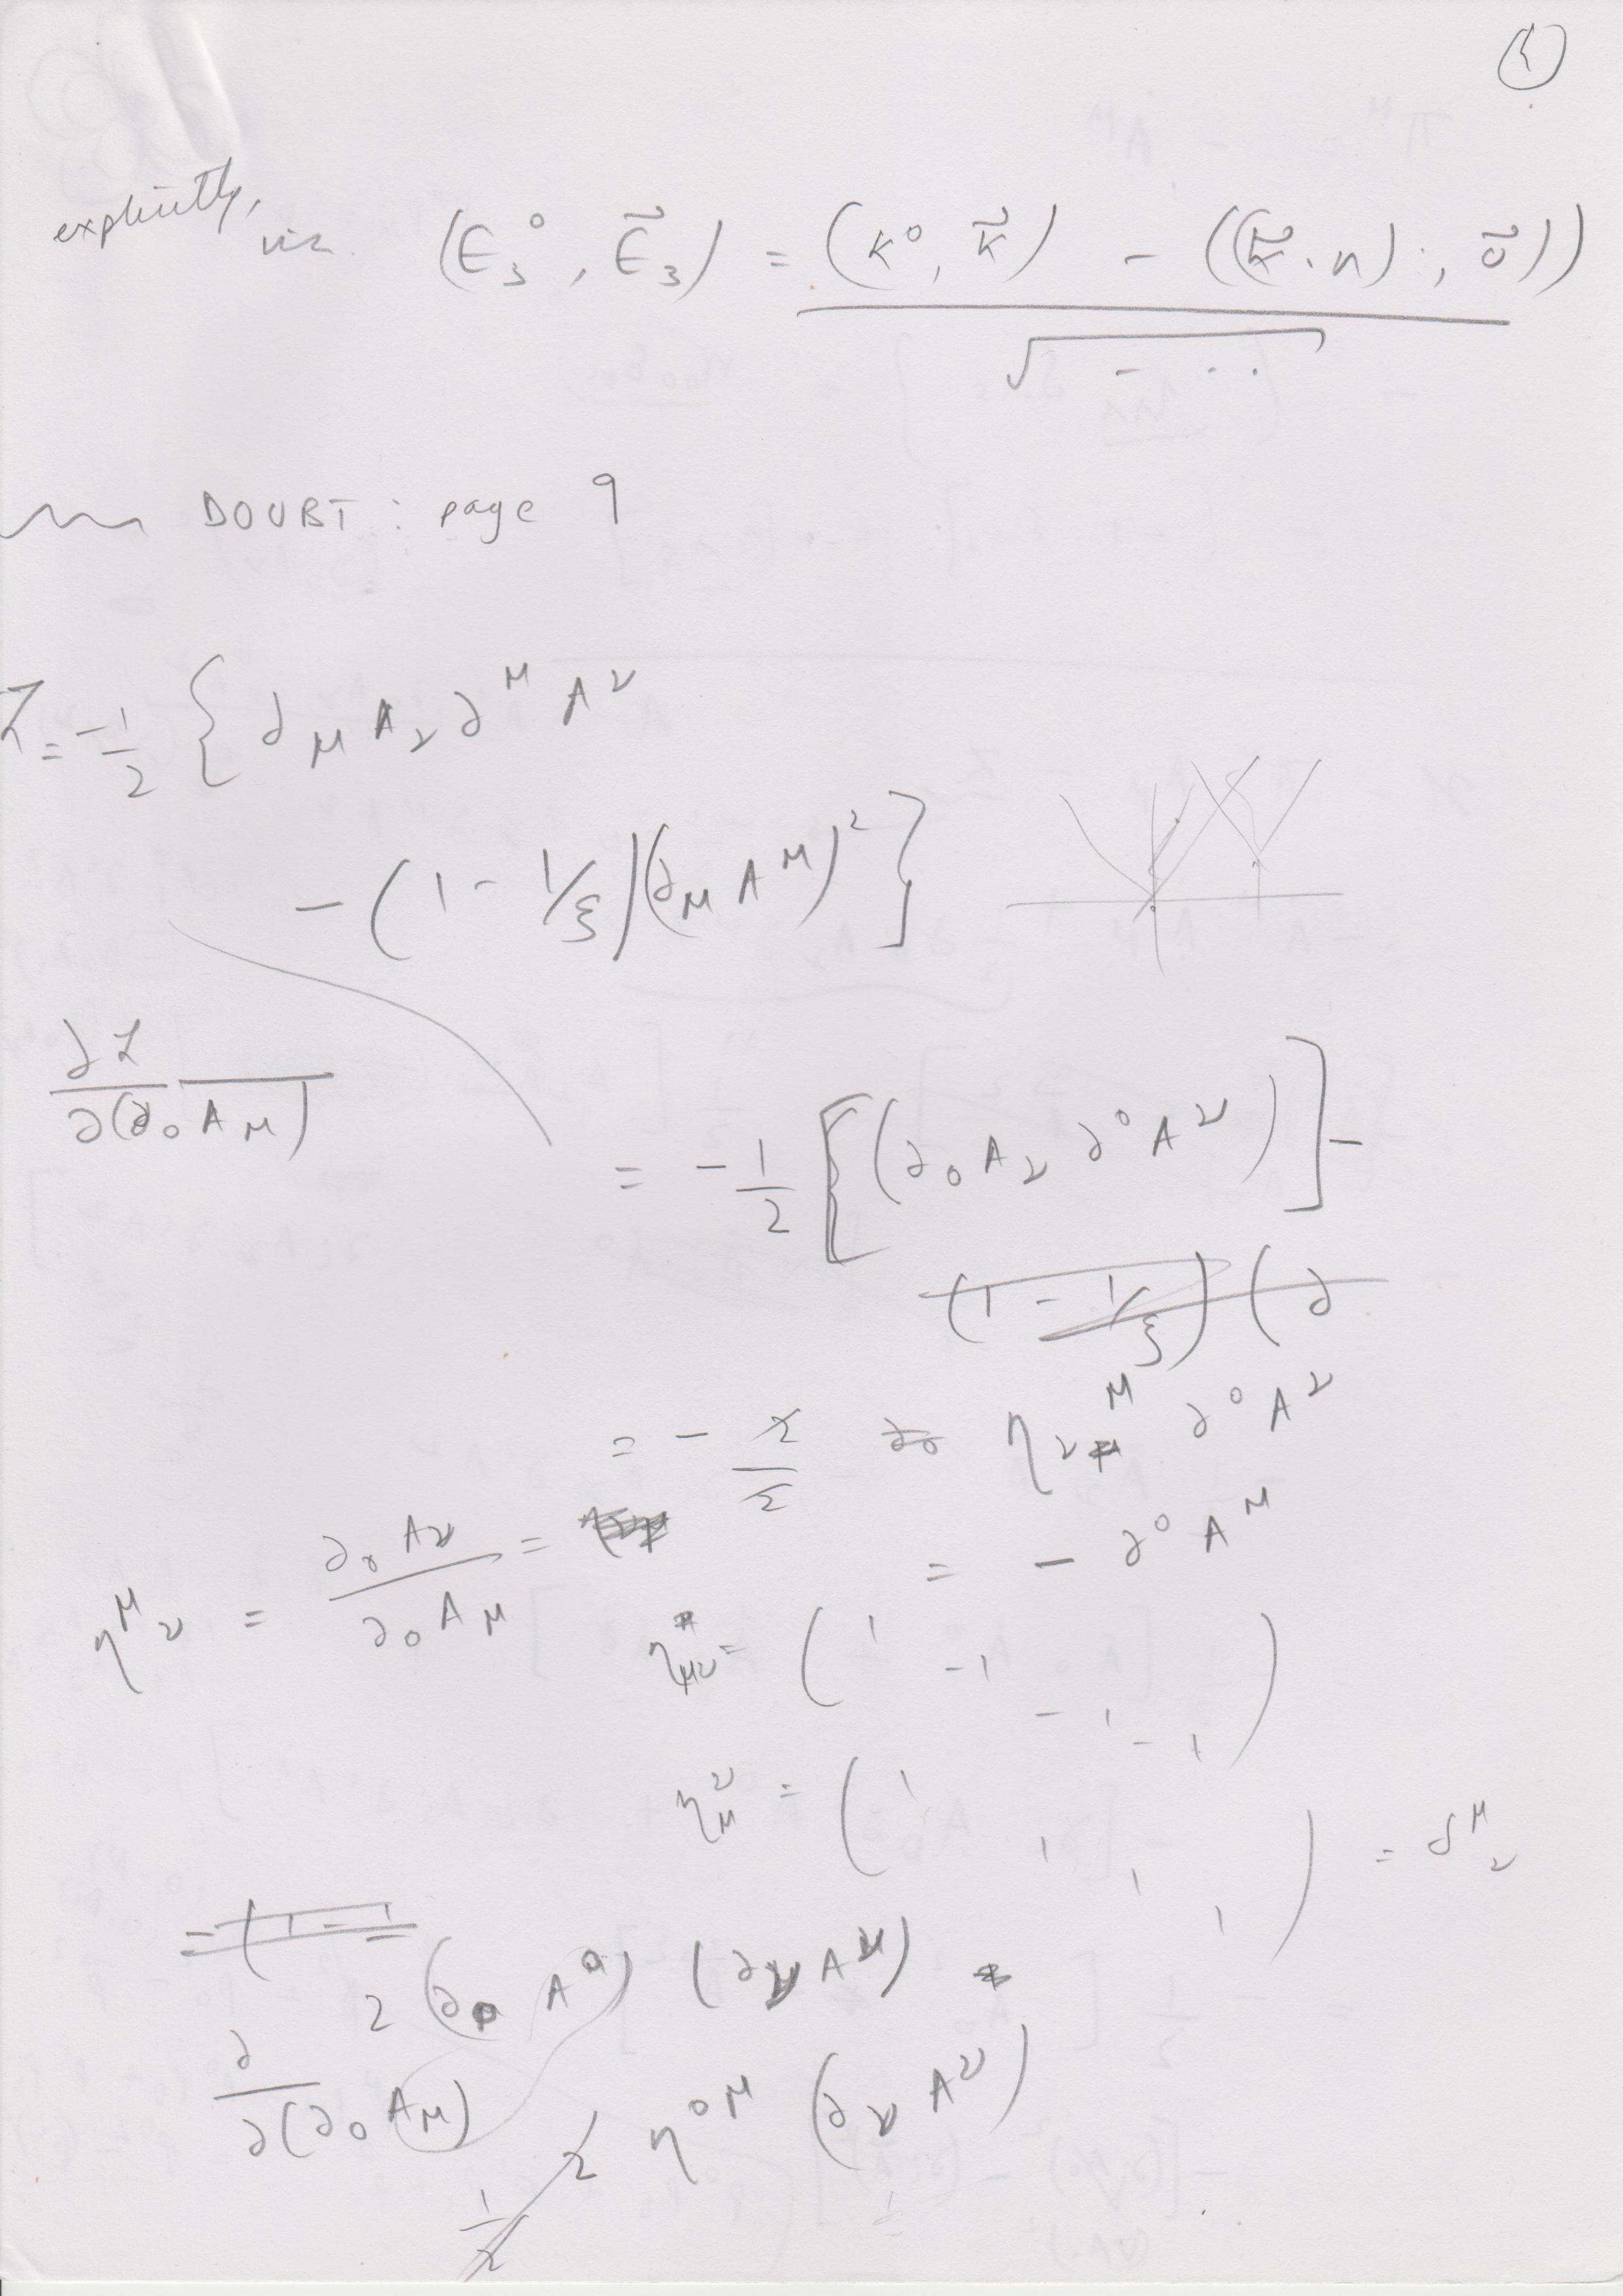 ①
explicitly, viz. (ϵ₃⁰, ϵ⃗₃) = (k⁰, k⃗) − ((k⃗.n), 0⃗))
√ - . .
DOUBT : page 9
ℒ = -1/2 { ∂_μ A_ν ∂^μ A^ν
− (1 - 1/ξ)(∂_μ A^μ)² }
∂ℒ / ∂(∂₀ A_μ)
= -1/2 [(∂₀ A_ν ∂⁰ A^ν)] −
(1 - 1/ξ) (∂
= - 2/2 η_ν^μ ∂⁰ A^ν
= - ∂⁰ A^μ
η^μ_ν = ∂₀ A_ν / ∂₀ A_μ =
η_μν = ( 1 -1 -1 -1 )
η_μ^ν = ( 1 1 1 1 ) = δ^μ_ν
= (1 - 1
2 (∂₀ A⁰) (∂_ν A^ν)
∂ / ∂(∂₀ A_μ)
1/2 2 η^{0μ} (∂_ν A^ν)